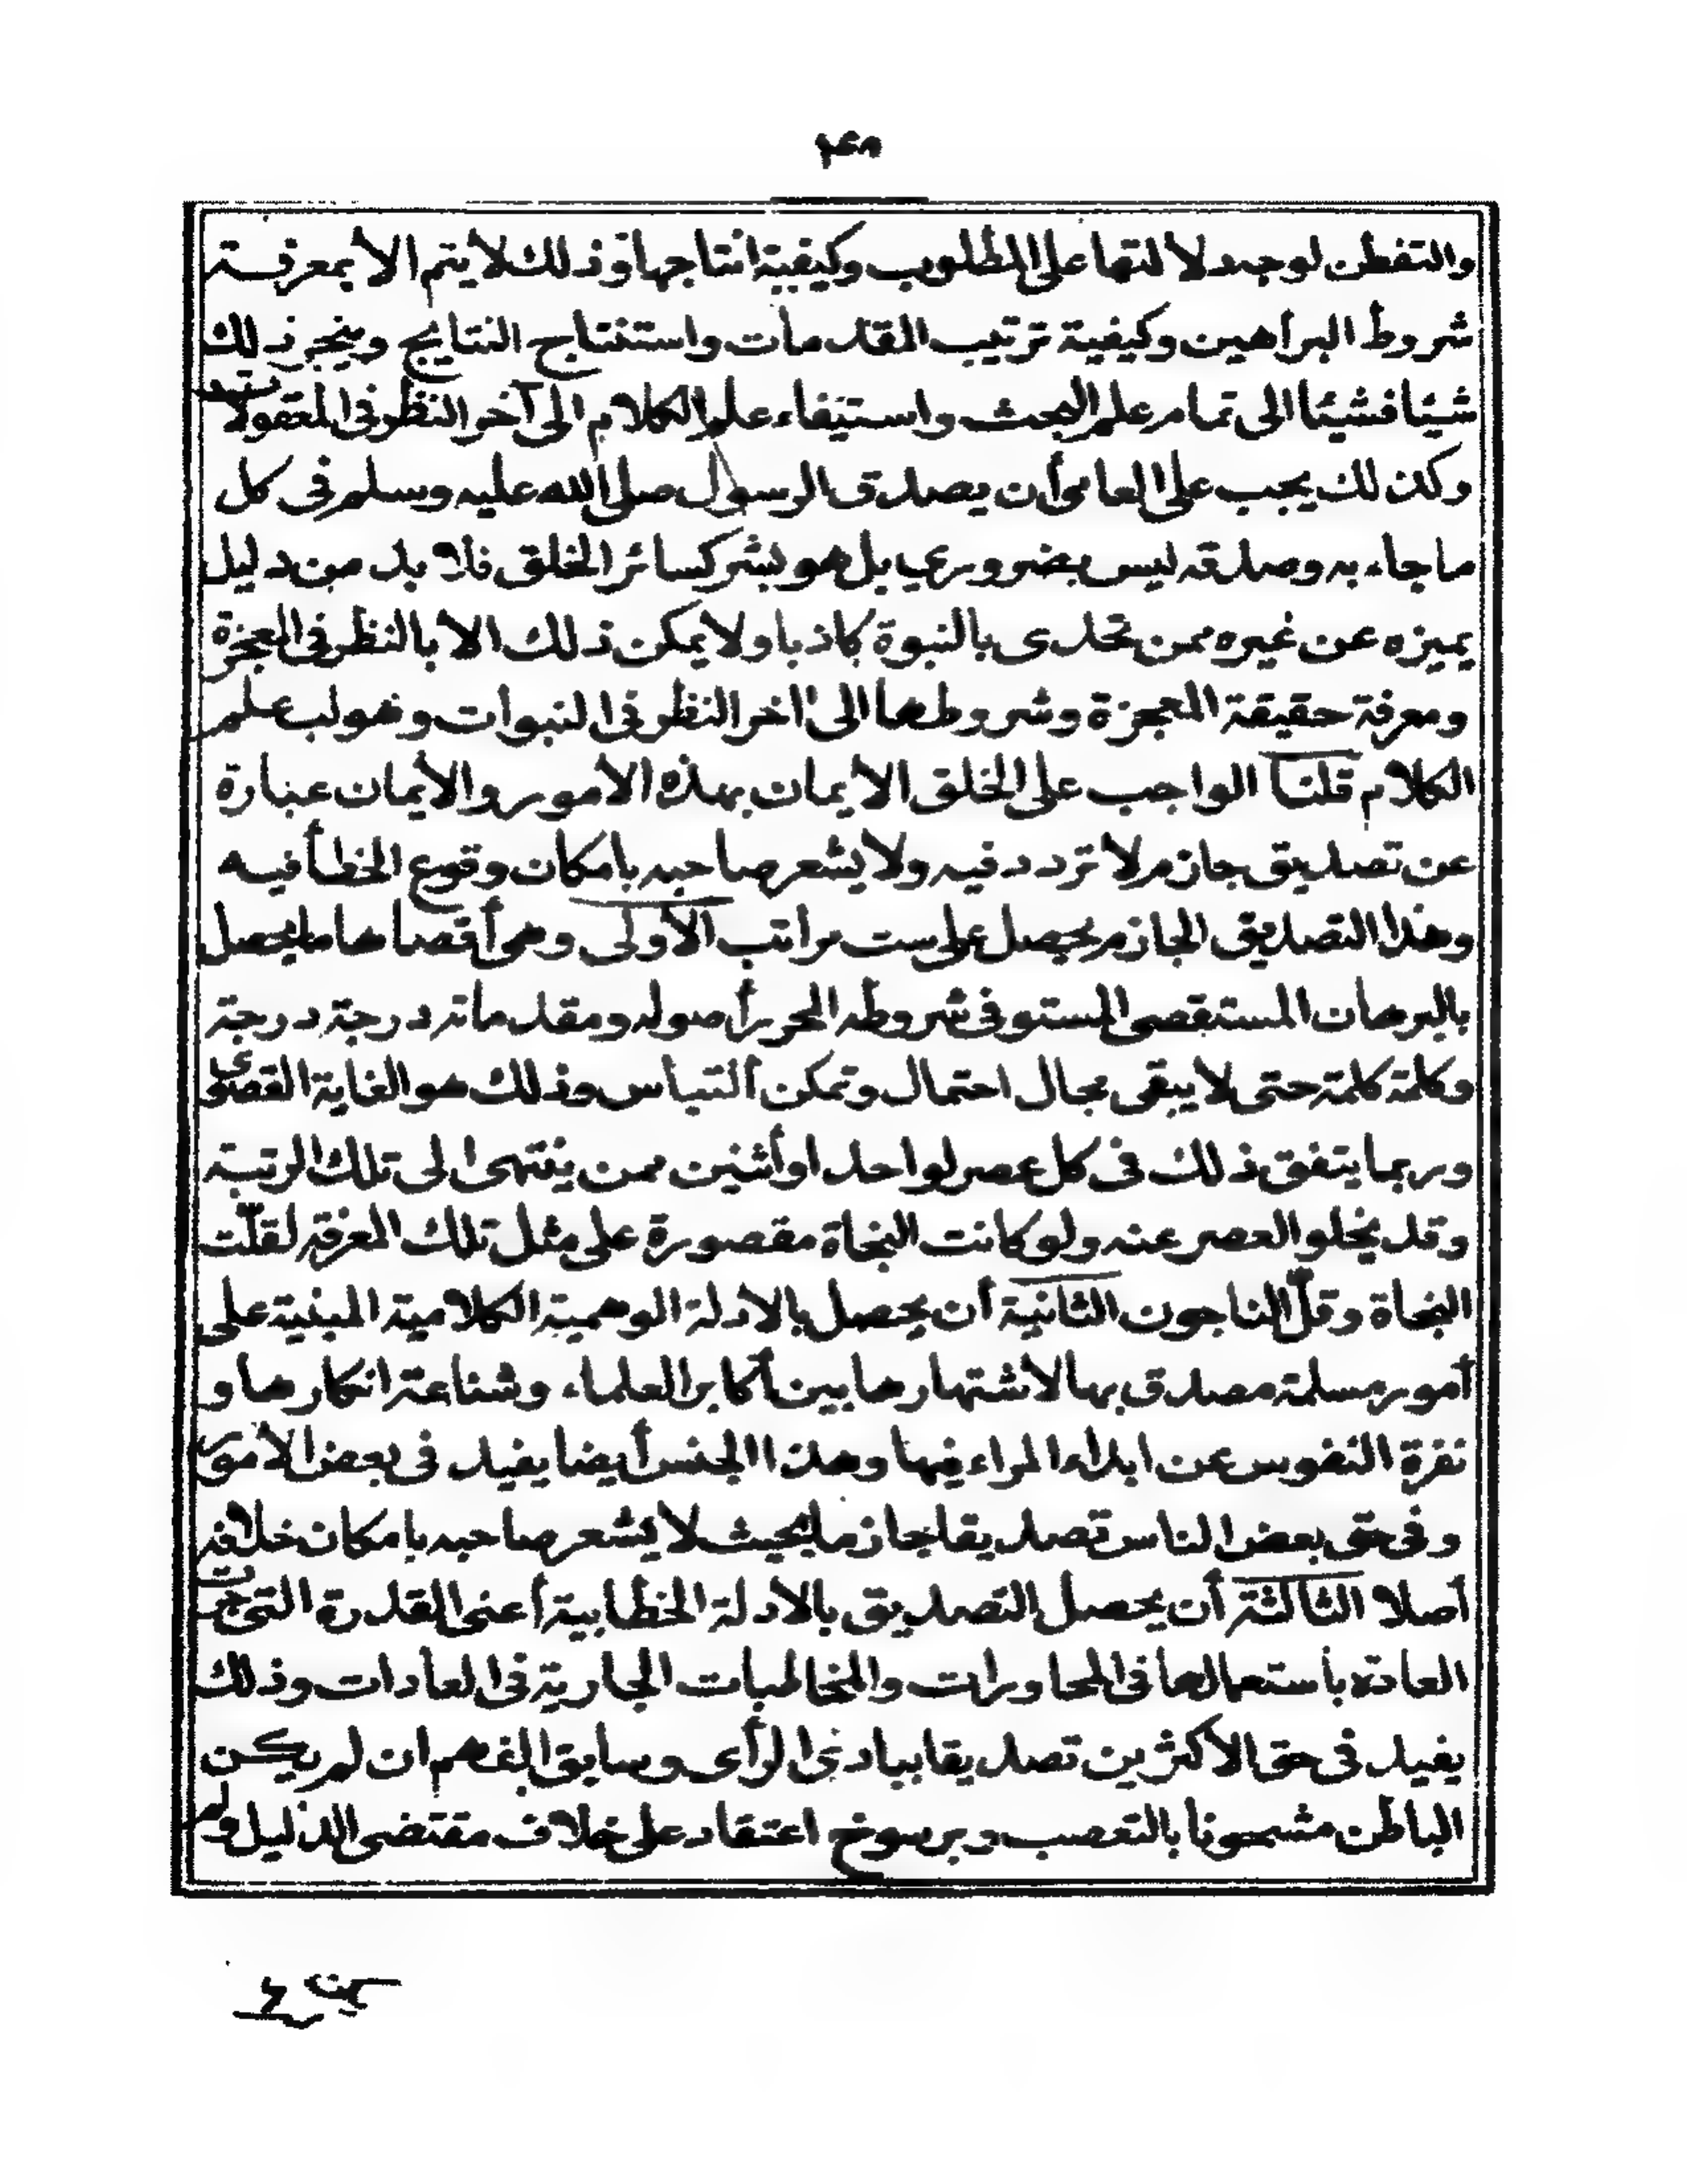 والتفطن لوجد لالتها على المطلوب وكيفية انتاجها وذلك لا يتم الا بمعرفة
شروط البراهين وكيفية ترتيب المقدمات واستنتاج النتايج وينجر ذلك
شيئا فشيئا الى تمام علم البحث واستيفاء علم الكلام الى آخر النظر فى المعقولات
وكذلك يجب على العامى أن يصدق الرسول صلى الله عليه وسلم فى كل
ما جاء به وصدقه ليس بضروري بل هو بشر كسائر الخلق فلا بد من دليل
يميزه عن غيره ممن تحدى بالنبوة كاذبا ولا يمكن ذلك الا بالنظر فى المعجزة
ومعرفة حقيقة المعجزة وشروطها الى اخر النظر فى النبوات وهو لب علم
الكلام قلنا الواجب على الخلق الأيمان بهذه الأمور والأيمان عبارة
عن تصديق جازم لا تردد فيه ولا يشعر صاحبه بامكان وقوع الخطأ فيه
وهذا التصديق الجازم يحصل على ست مراتب الأولى وهى أقصاها ما يحصل
بالبرهان المستقصى المستوفى شروطه المحرر أصوله ومقدماته درجة درجة
وكلمة كلمة حتى لا يبقى مجال احتمال وتمكن التباس وذلك هو الغاية القصوى
وربما يتفق ذلك فى كل عصر لواحد اوأثنين ممن ينتهى الى تلك الرتبة
وقد يخلو العصر عنه ولو كانت النجاة مقصورة على مثل تلك المعرفة لقلّت
النجاة وقلّ الناجون الثانية أن يحصل بالادلة الوهمية الكلامية المبنية على
أمور مسلمة مصدق بها لاشتهارها بين أكابر العلماء وشناعة انكارها و
نفرة النفوس عن ابداء المراء فيها وهذا الجنس أيضا يفيد فى بعض الأمور
وفى حق بعض الناس تصديقا جازما بحيث لا يشعر صاحبه بامكان خلافه
أصلا الثالثة أن يحصل التصديق بالادلة الخطابية أعنى القدرة التى جرت
العادة بأستعمالها فى المحاورات والمخاطبات الجارية فى العادات وذلك
يفيد فى حق الأكثرين تصديقا ببادئ الرأى وسابق الفهم ان لم يكن
الباطن مشحونا بالتعصب وبرسوخ اعتقاد على خلاف مقتضى الدليل ولم